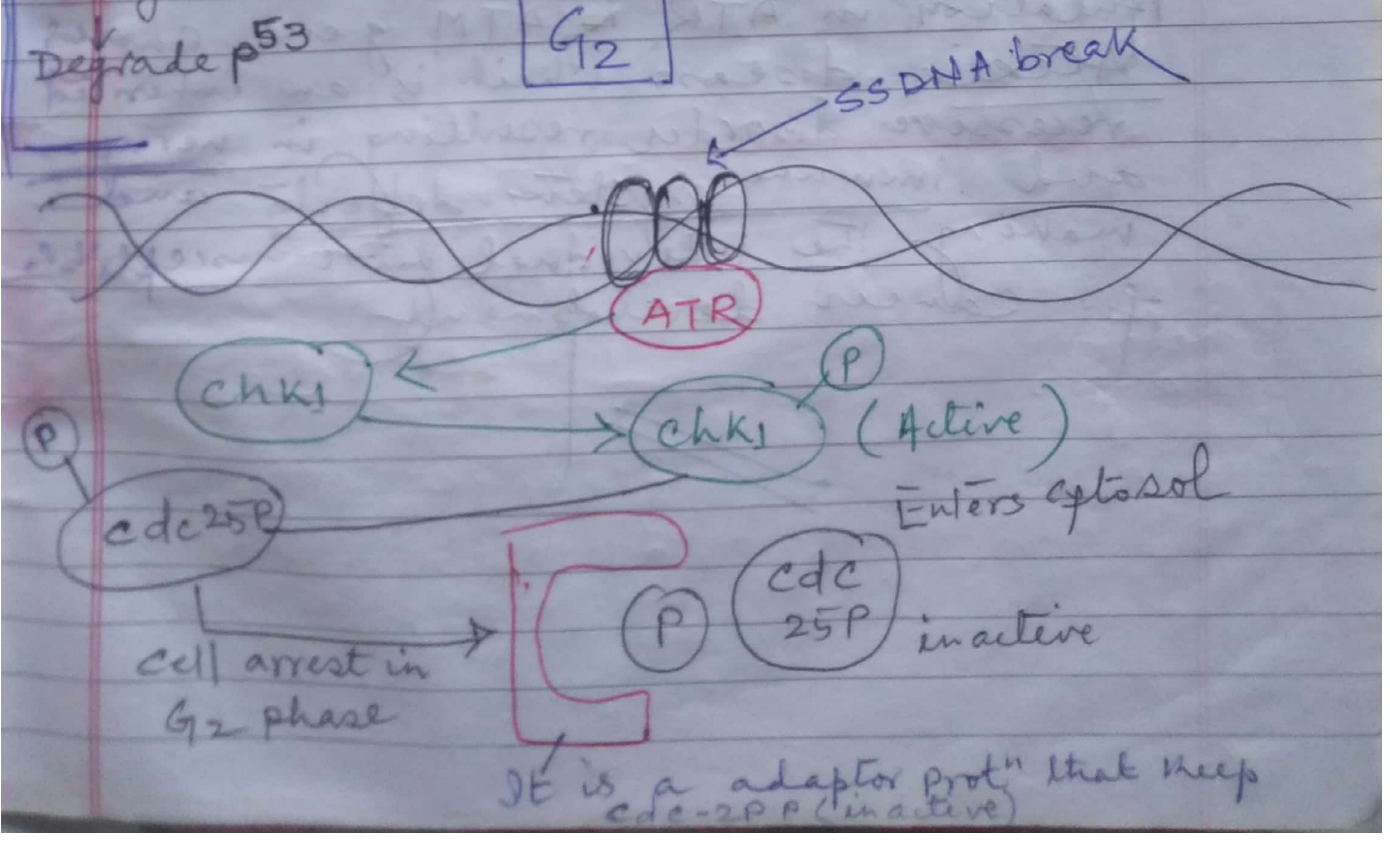 Degrade p53
G2
SSDNA break
ATR
Chk1
P
Chk1 (Active)
P
Enters cytosol
cdc25P
cdc
25P
P
inactive
Cell arrest in
G2 phase
It is a adaptor protn that keep
cdc-2PP (inactive)